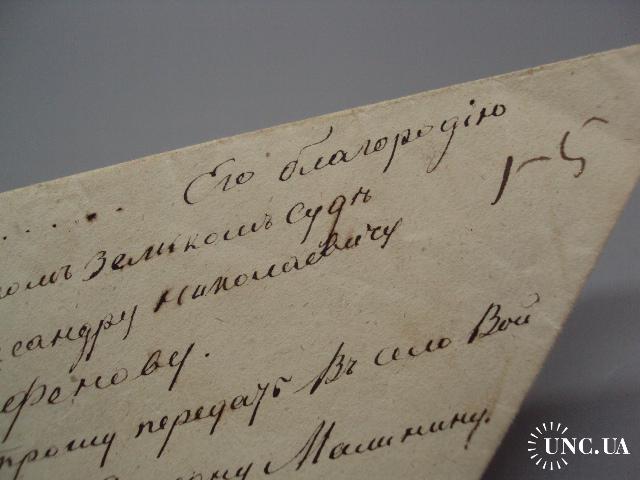 Его благородію
омъ Земскомъ Судѣ
ксандру Николаевичу
фенову.
прошу передать Въ село Вой
ону Малинину.
UNC.UA